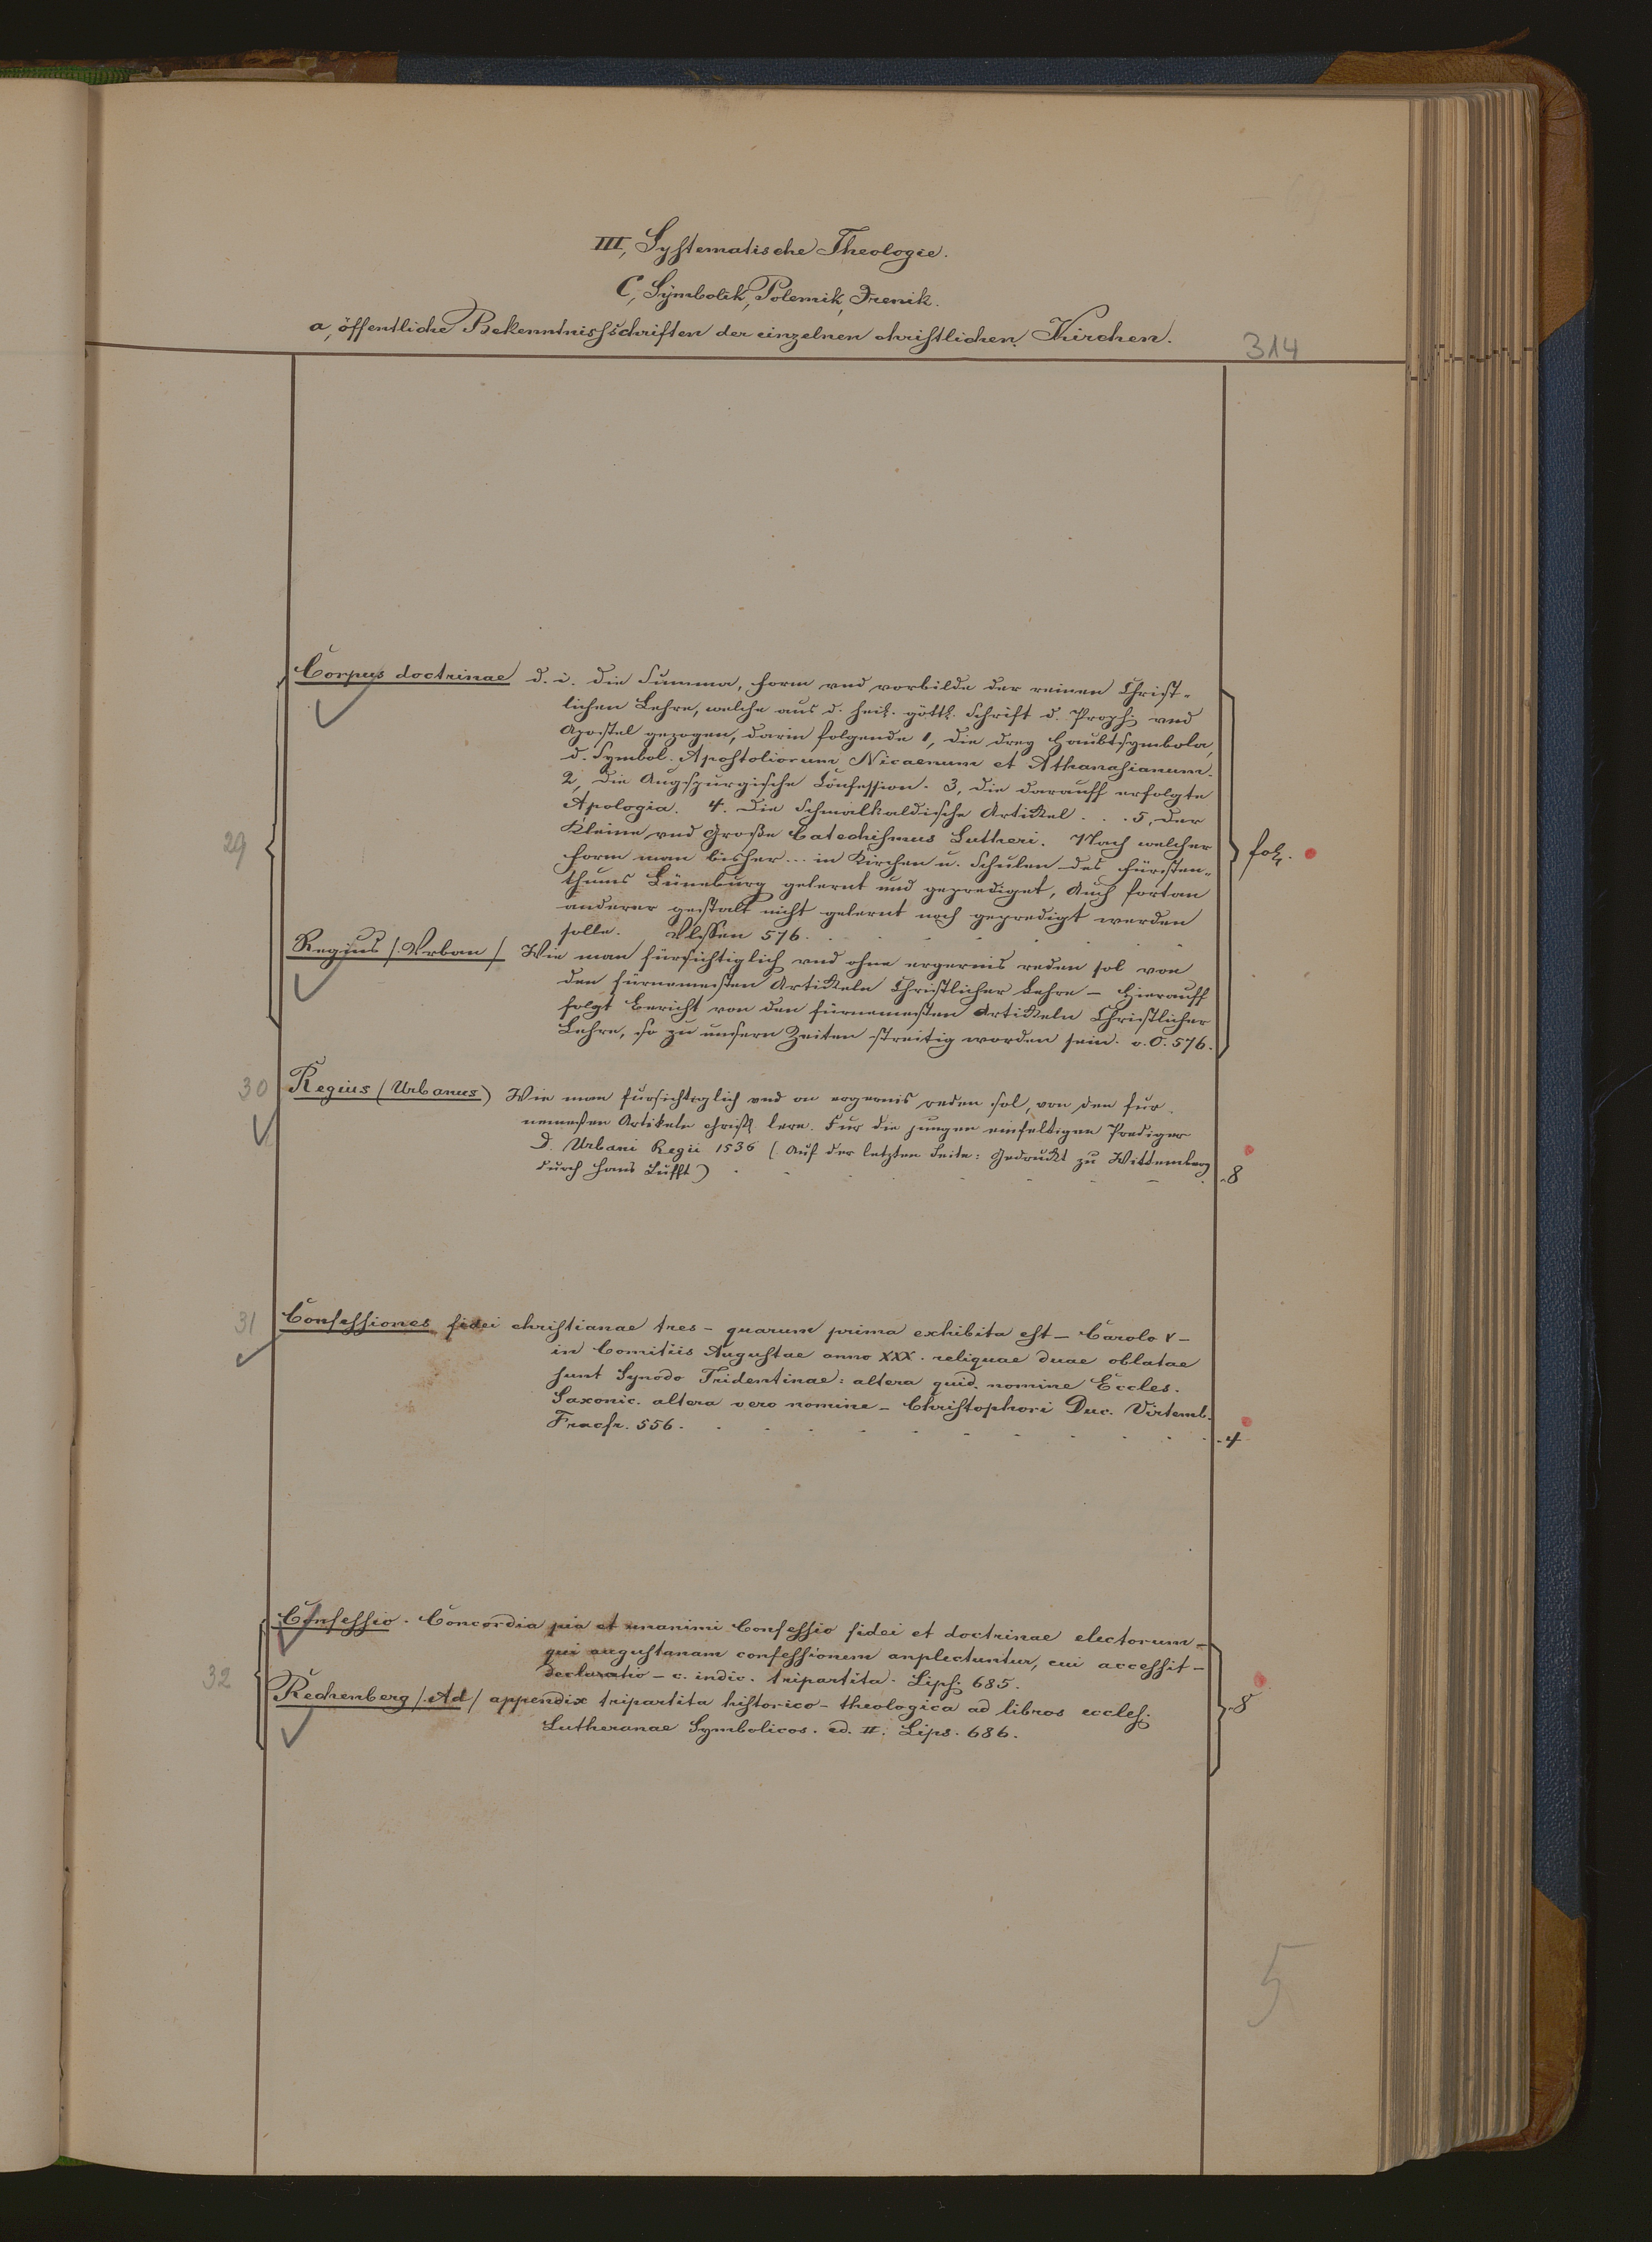 III, Systematische Theologie.
C, Symbolik, Polemik, Irenik.
a, öffentliche Bekenntnissschriften der einzelnen christlichen Kirchen.
314
29
Corpus doctrinae d. i. die Summa, form vnd vorbilde der reinen Christ-
lichen Lehre, welche aus d. heil. göttl. Schrift d. Proph: vnd
Apostel gezogen, darin folgende 1, die drey Haubtsymbola,
d. Symbol. Apostolicorum Nicaenum et Athanasianum.
2, die Augspurgische Confession. 3, die darauff erfolgte
Apologia. 4. die Schmalkaldische Artikel . . . 5, der
Kleine vnd Große Catechismus Lutheri. Nach welcher
form man bisher... in Kirchen u. Schulen des Fürsten-
thums Lüneburg gelernt und geprediget, Auch fortan
anderer gestalt nicht gelernt noch gepredigt werden
solle. Vlssen 576.
fol.
Regius /. Vrban / Wie man fürsichtiglich vnd ohne ergernis reden sol von
den fürnemesten Artikeln Christlicher Lehre - Hierauff
folgt Bericht von den fürnemesten Artikeln Christlicher
Lehre, so zu unsern Zeiten streitig worden sein. v. O. 576.
30
Regius (Urbanus) Wie man fursichtiglich vnd on ergernis reden sol, von den fur
nemesten Artikeln christl. lere. Fur die jungen einfeltigen Prediger
D. Urbani Regii 1536 (. Auf der letzten Seite: Gedruckt zu Wittemberg
durch Hans Lufft) 8
31
Confessiones fidei christianae tres - quarum prima exhibita est - Carolo V -
in Comitiis Augustae anno XXX. reliquae duae oblatae
sunt Synodo Tridentinae: altera quid. nomine Eccles.
Saxonic. altera vero nomine - Christophori Duc. Virtemb.
Fracfr. 556. 4
32
Confessio. Concordia pia et unanimi Confessio fidei et doctrinae electorum -
qui augustanam confessionem anplectuntur, cui accessit -
declaratio - c. indic. tripartita. Lips: 685.
Rechenberg /. Ad / appendix tripartita historico-theologica ad libros eccles:
Lutheranae Symbolicos. ed. II. Lips. 686.
8
5